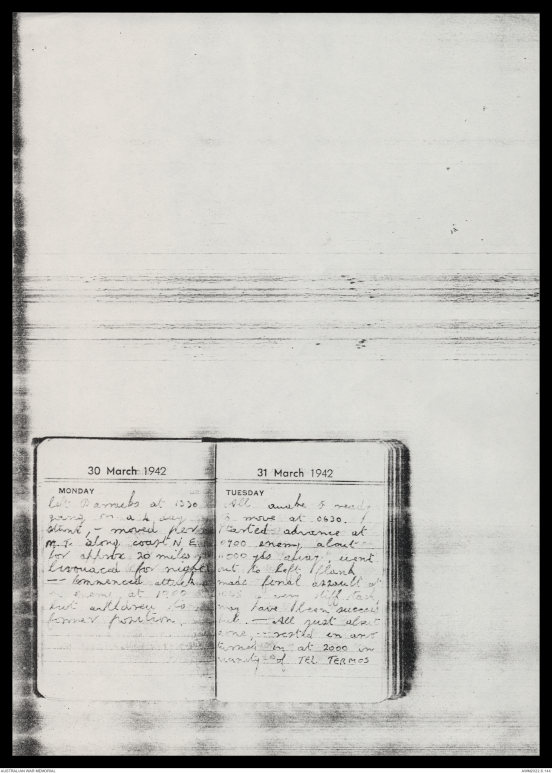 30 March 1942
MONDAY
left Barracks at 1230
going on a 4 day
stunt, - moved per
M.T. along coast N.E
for approx 20 miles &
bivouaced for night
- Commenced attack
enemy at
but withdrew to
former position.
31 March 1942
TUESDAY
All awake & ready
to move at 0630.
Started advance at
0700 enemy about
000 yds away, went
out to left flank
made final assault at
a very stiff task
may have been success
but. - All just about
done, - rested in
at 2000 in
of TEL TERMOS
AUSTRALIAN WAR MEMORIAL